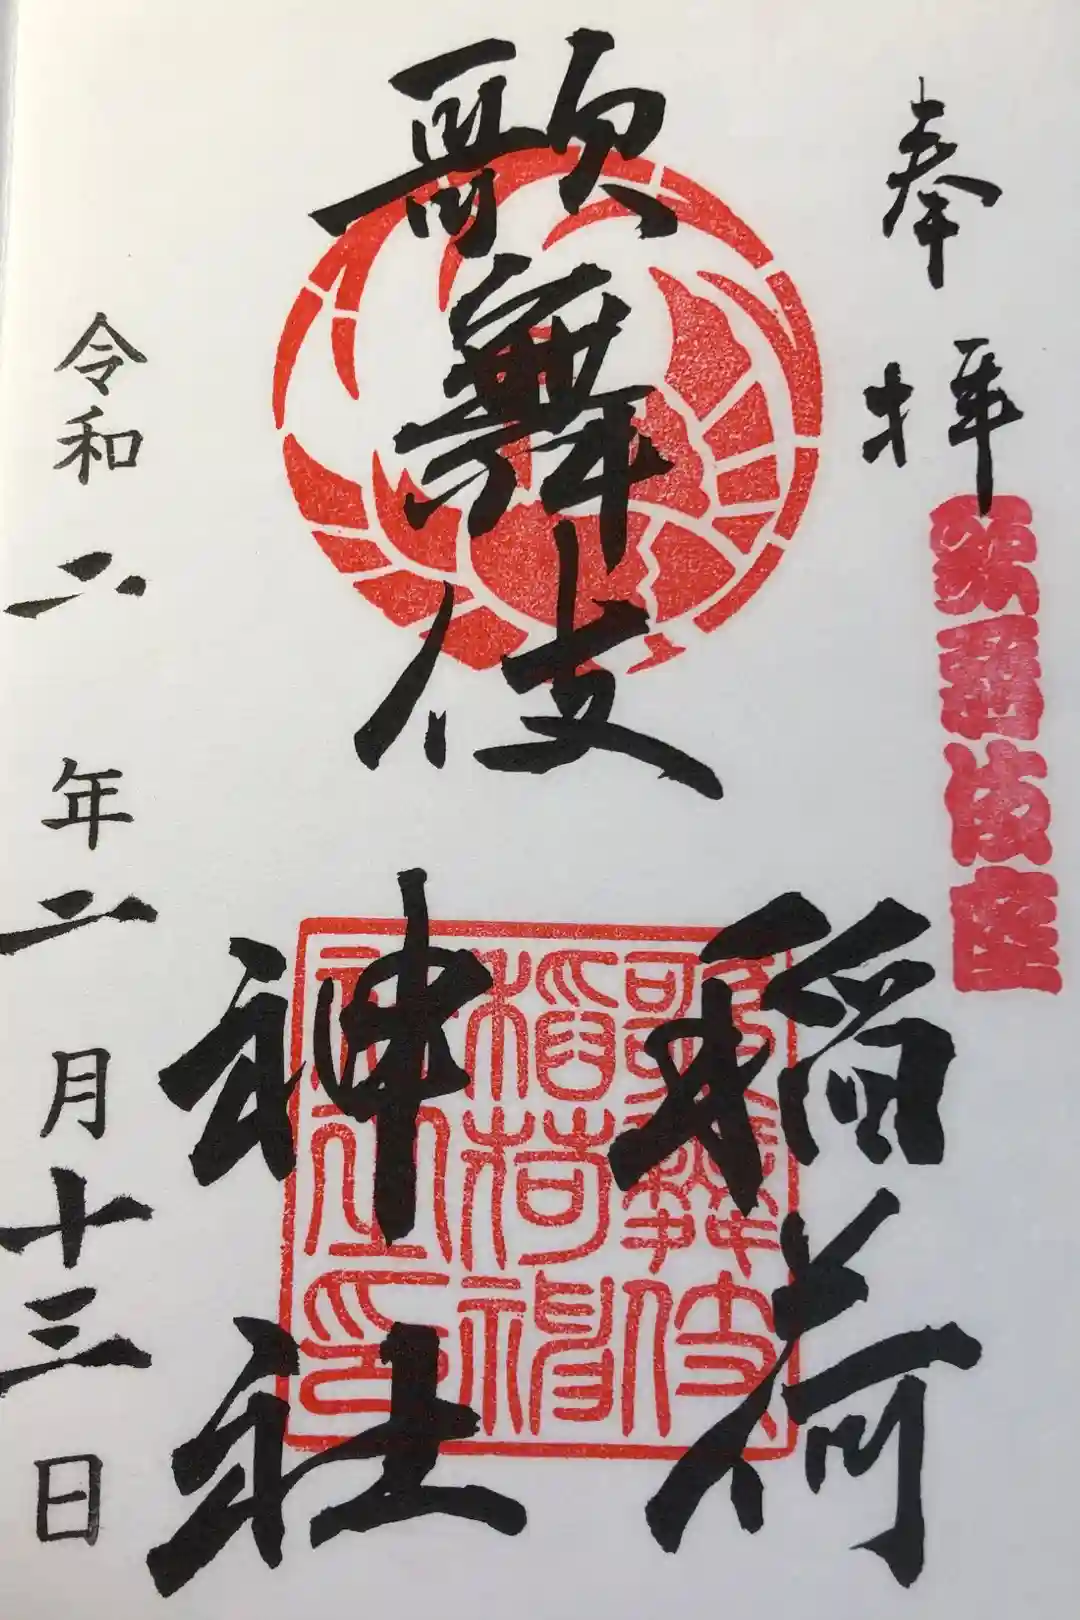 奉拝
歌舞伎座
歌舞伎
稲荷
神社
歌舞伎
稲荷神
社之印
令和二年二月十三日